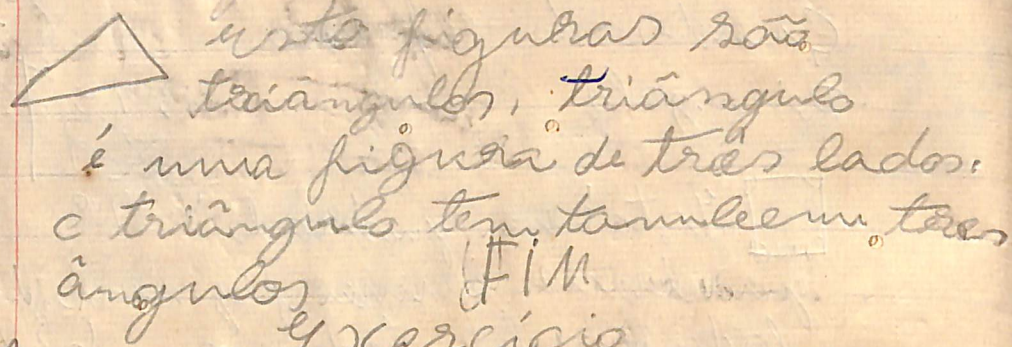 esta figuras são
triângulos, triângulo
é uma figura de três lados.
e triângulo tem tambeem tres
ângulos FIM
Exercício